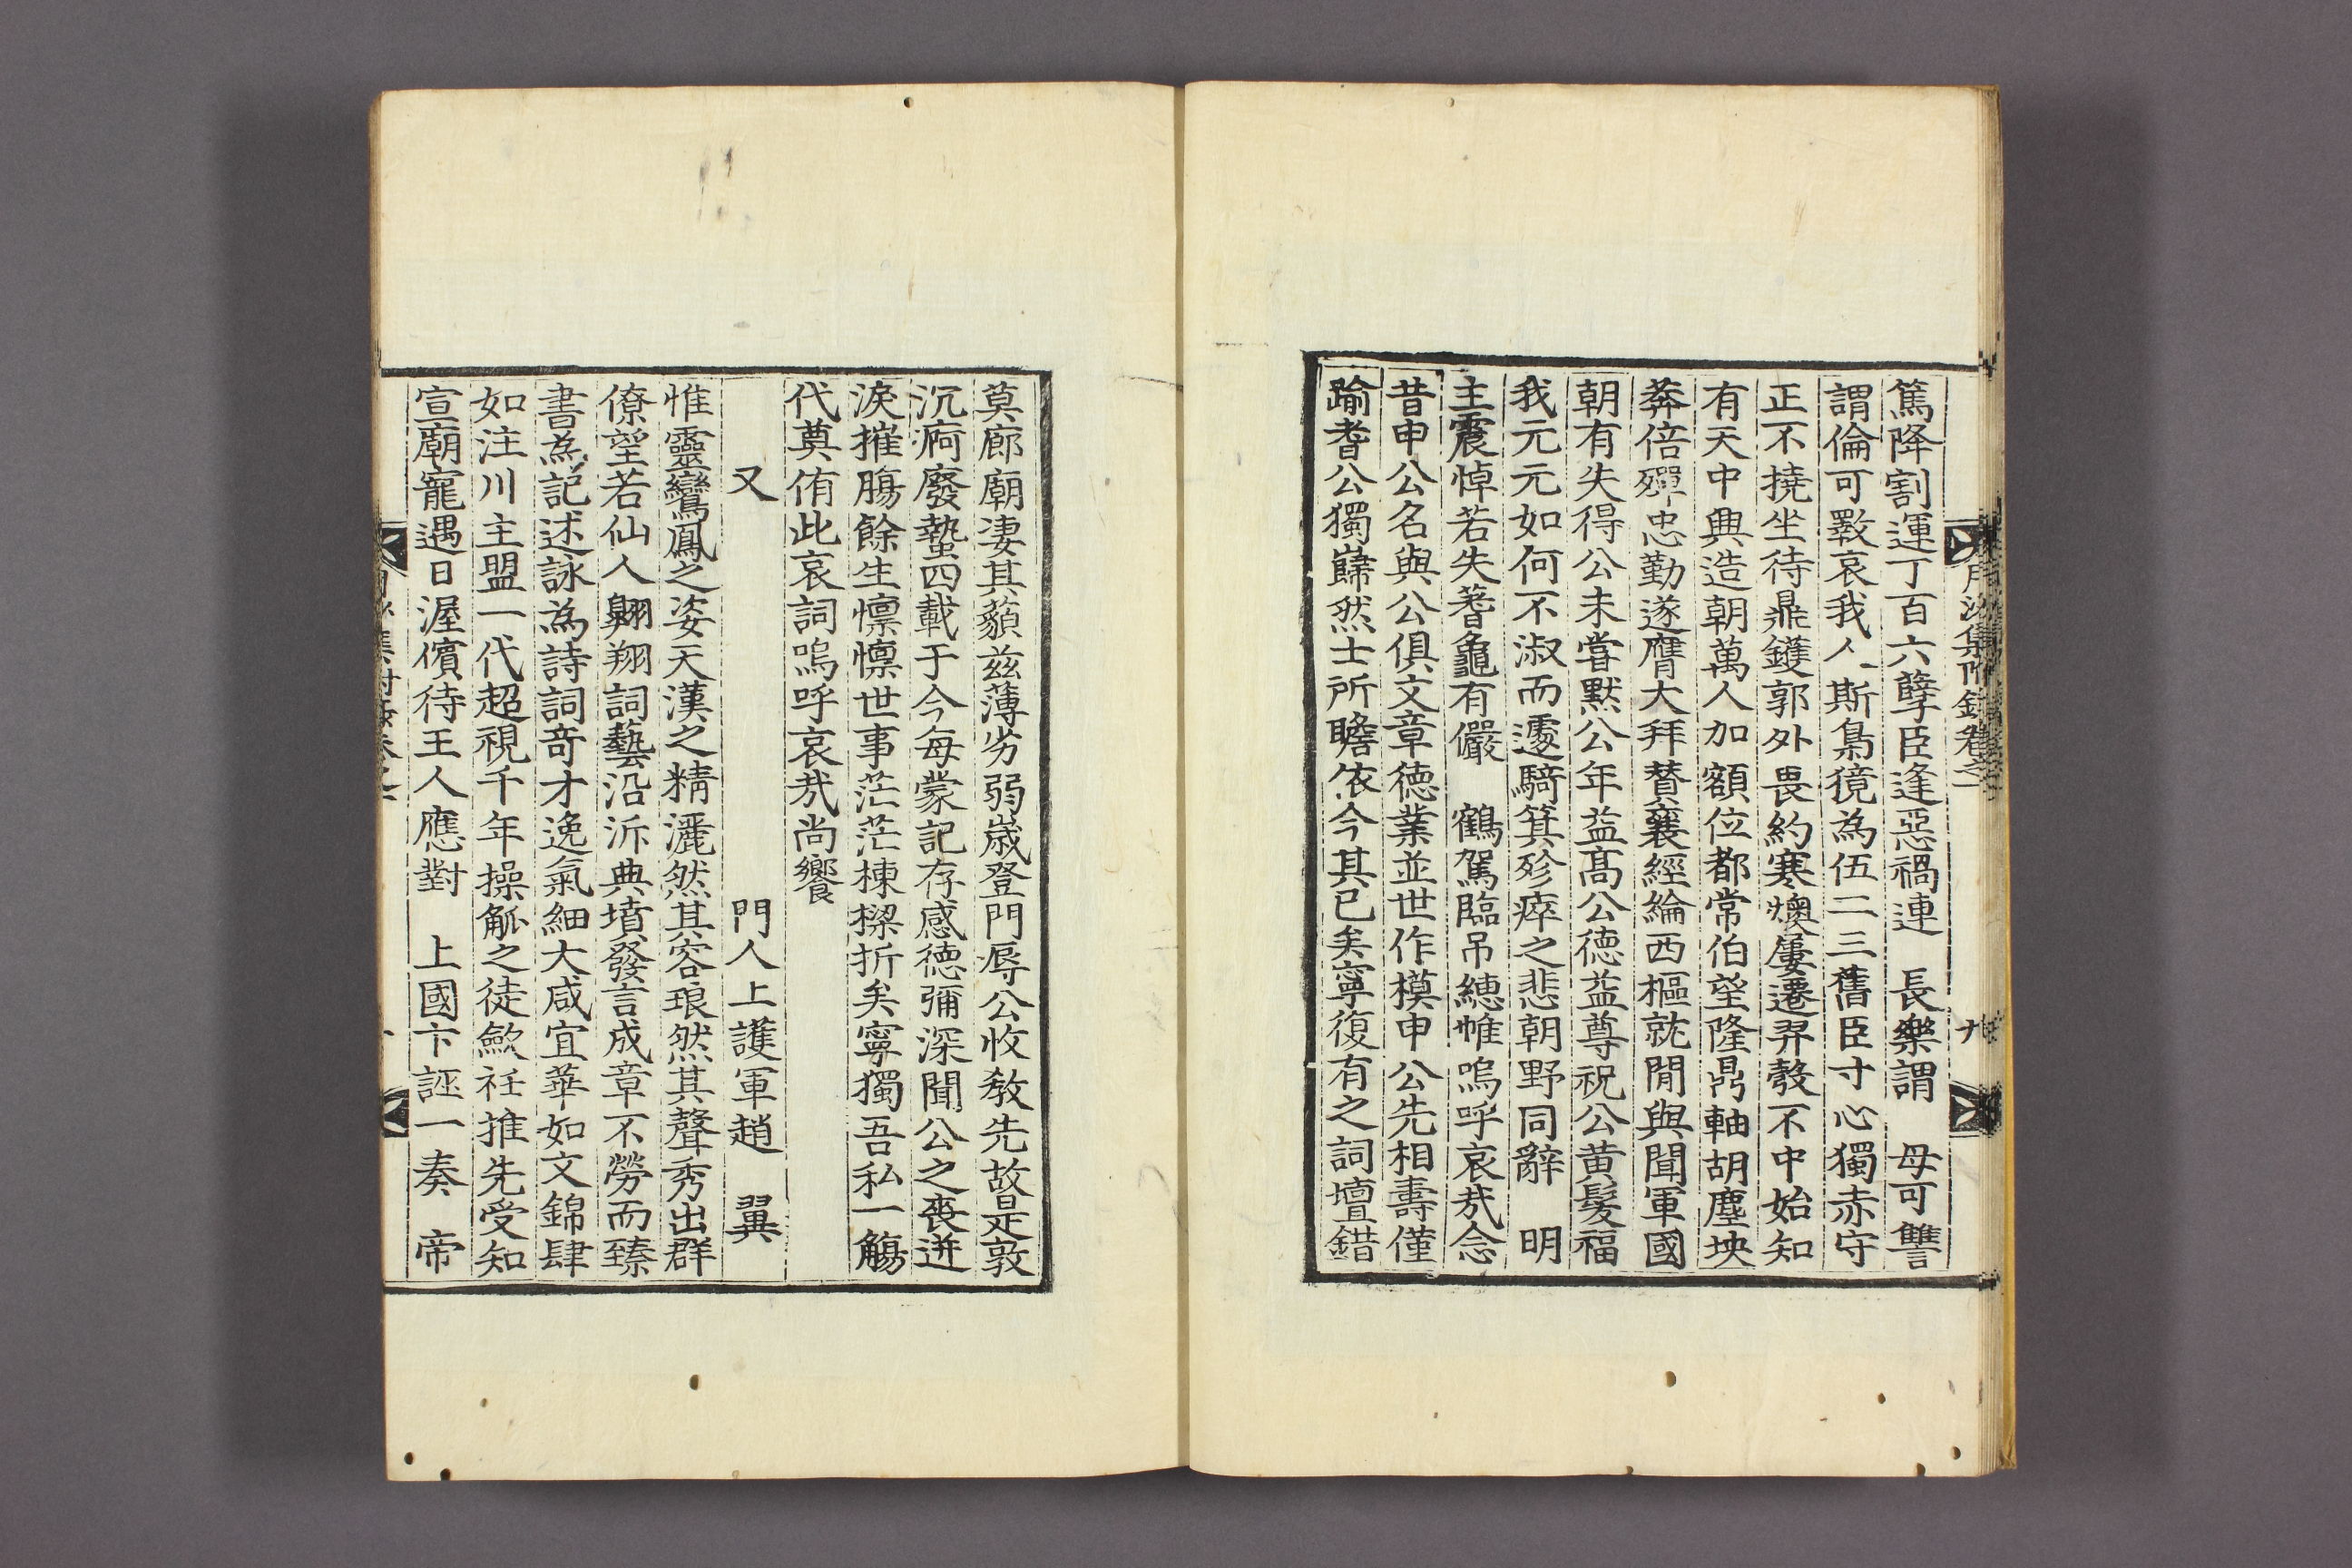 篤降割運丁百六孽臣逢惡禍連　長樂謂　母可讐
謂倫可斁哀我人斯梟獍為伍二三舊臣寸心獨赤守
正不撓坐待鼎鑊郭外畏約寒燠屢遷羿彀不中始知
有天中興造朝萬人加額位都常伯望隆鼎軸胡塵坱
莽倍殫忠勤遂膺大拜賛襄經綸西樞就閒與聞軍國
朝有失得公未嘗默公年益髙公德益尊祝公黄髮福
我元元如何不淑而遽騎箕殄瘁之悲朝野同辭　明
主震悼若失蓍龜有儼　鶴駕臨吊繐帷嗚呼哀㢤念
昔申公名與公俱文章德業並世作模申公先相壽僅
踰耆公獨巋然士所瞻依今其已矣寧復有之詞壇錯
月沙集附錄卷之一
九
莫廊廟凄其藐茲薄劣弱歲登門辱公收教先故是敦
沉痾廢蟄四載于今每蒙記存感德彌深聞公之喪迸
淚摧膓餘生懍懍世事茫茫棟樑折矣寧獨吾私一觴
代奠侑此哀詞嗚呼哀㢤尚饗
又　門人上護軍趙　翼
惟靈鸞鳳之姿天漢之精灑然其容琅然其聲秀出群
僚望若仙人翺翔詞藝沿泝典墳發言成章不勞而臻
書為記述詠為詩詞竒才逸氣細大咸宜華如文錦肆
如注川主盟一代超視千年操觚之徒歛衽推先受知
宣廟寵遇日渥儐待王人應對　上國卞誣一奏　帝